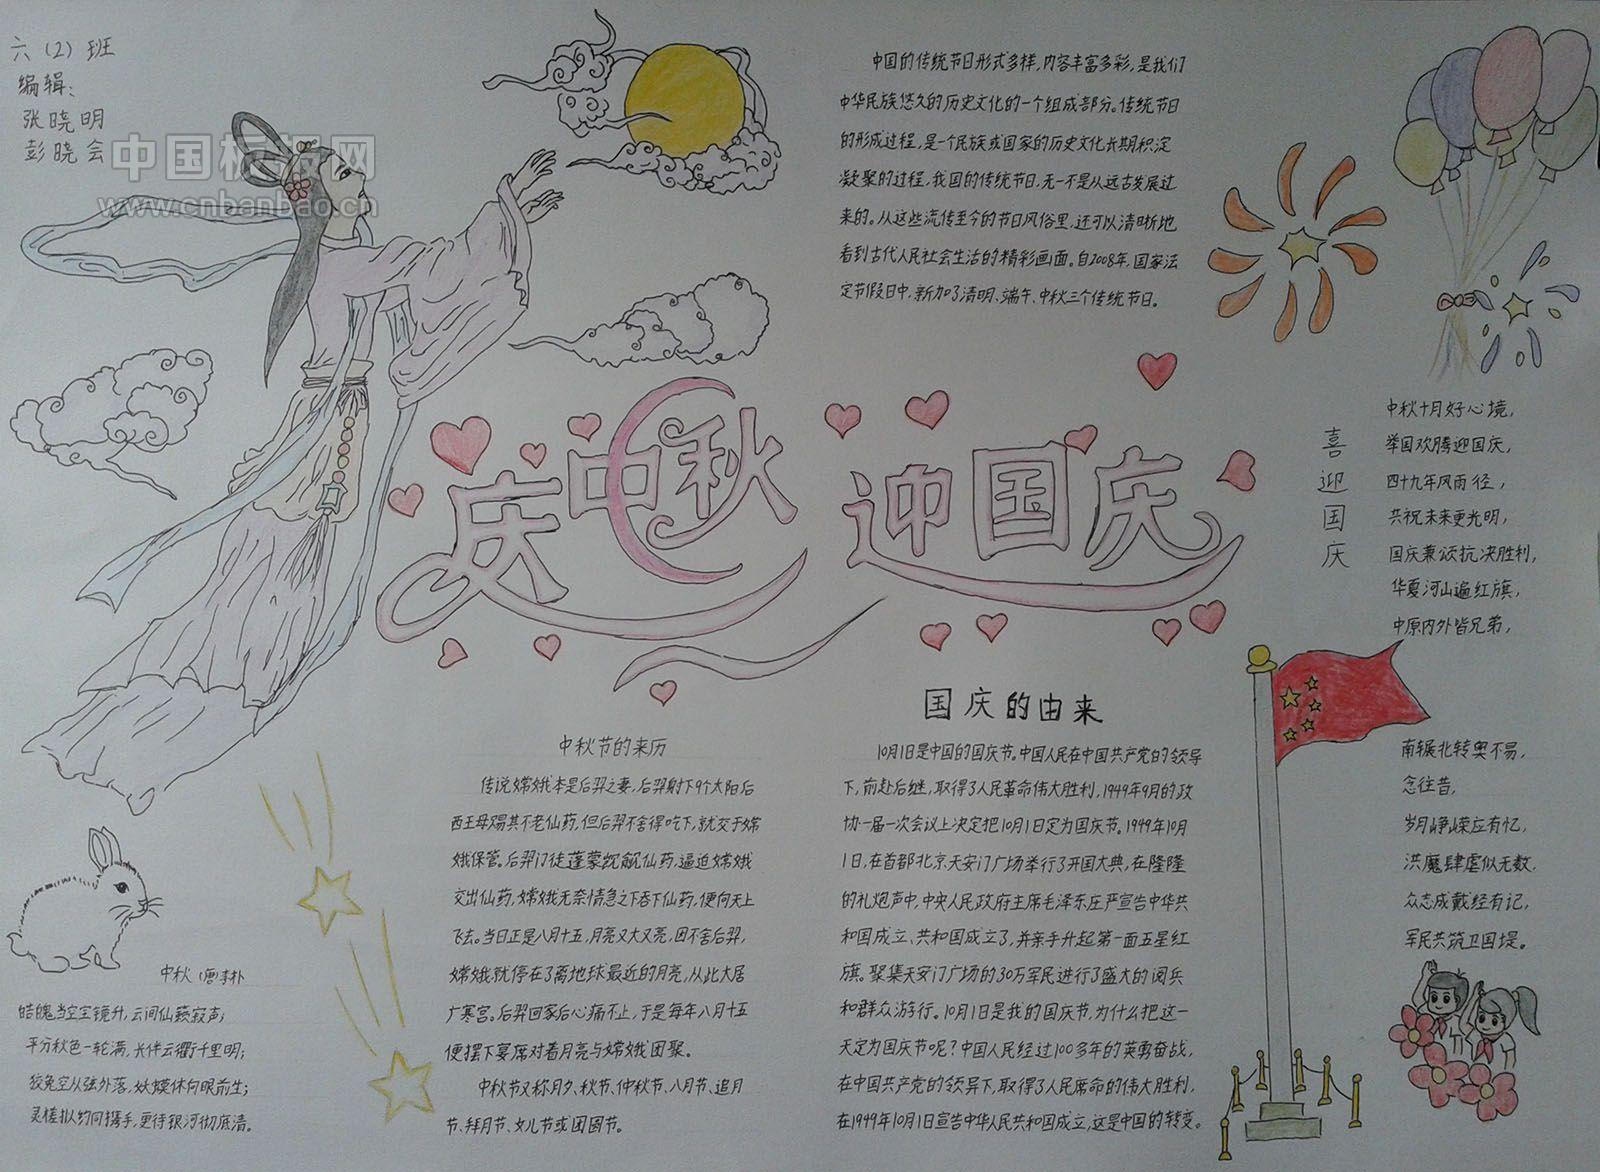 六（2）班
编辑：
张晓明
彭晓会
中国板报网
www.cnbanbao.cn
中国的传统节日形式多样，内容丰富多彩，是我们
中华民族悠久的历史文化的一个组成部分。传统节日
的形成过程，是一个民族或国家的历史文化长期积淀
凝聚的过程，我国的传统节日，无一不是从远古发展过
来的。从这些流传至今的节日风俗里，还可以清晰地
看到古代人民社会生活的精彩画面。自2008年，国家法
定节假日中，新加了清明、端午、中秋三个传统节日。
庆中秋 迎国庆
喜迎国庆
中秋十月好心境，
举国欢腾迎国庆，
四十九年风雨径，
共祝未来更光明，
国庆兼颂抗决胜利，
华夏河山遍红旗，
中原内外皆兄弟，
南辗北转奥不易，
念往昔，
岁月峥嵘应有忆，
洪魔肆虐似无数，
众志成戴经有记，
军民共筑卫国堤。
中秋节的来历
传说嫦娥本是后羿之妻，后羿射下9个太阳后
西王母赐其不老仙药，但后羿不舍得吃下，就交于嫦
娥保管。后羿门徒蓬蒙觊觎仙药，逼迫嫦娥
交出仙药，嫦娥无奈情急之下吞下仙药，便向天上
飞去。当日正是八月十五，月亮又大又亮，因不舍后羿，
嫦娥就停在了离地球最近的月亮，从此大居
广寒宫。后羿回家后心痛不止，于是每年八月十五
便摆下宴席对着月亮与嫦娥团聚。
中秋节又称月夕、秋节、仲秋节、八月节、追月
节、拜月节、女儿节或团圆节。
国庆的由来
10月1日是中国的国庆节。中国人民在中国共产党的领导
下，前赴后继，取得了人民革命伟大胜利，1949年9月的政
协一届一次会议上决定把10月1日定为国庆节。1949年10月
1日，在首都北京天安门广场举行了开国大典，在隆隆
的礼炮声中，中央人民政府主席毛泽东庄严宣告中华共
和国成立、共和国成立了，并亲手升起第一面五星红
旗。聚集天安门广场的30万军民进行了盛大的阅兵
和群众游行。10月1日是我的国庆节，为什么把这一
天定为国庆节呢？中国人民经过100多年的英勇奋战，
在中国共产党的领导下，取得了人民席命的伟大胜利，
在1949年10月1日宣告中华人民共和国成立，这是中国的转变。
中秋 （唐 李朴
皓魄当空宝镜升，云间仙籁寂声；
平分秋色一轮满，长伴云衢千里明；
狡兔空从弦外落，妖蟆休向眼前生；
灵槎拟约同携手，更待银河彻底清。